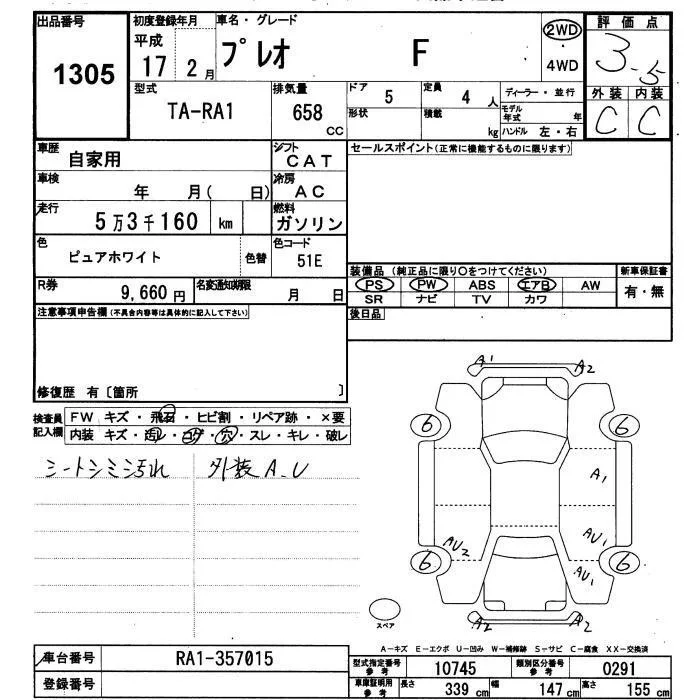 出品番号 初度登録年月 車名・グレード 2WD 評価点
1305 平成 17 2月 プレオ F 4WD 3.5
型式 排気量 ドア 5 定員 4人 ディーラー・並行 外装 内装
TA-RA1 658 CC 形状 積載 kg モデル年式 年 C C
ハンドル 左・右
車歴 自家用 シフト CAT セールスポイント(正常に機能するものに限ります)
車検 年 月( 日) 冷房 AC
走行 5万3千160 km 燃料 ガソリン
色 ピュアホワイト 色替 色コード 51E
装備品(純正品に限り○をつけてください) 新車保証書
R券 9,660円 名変通知期限 月 日 PS PW ABS エアB AW 有・無
SR ナビ TV カワ
注意事項申告欄(不具合内容等は具体的に記入して下さい) 後日品
修復歴 有〔箇所 〕
検査員記入欄 FW キズ・飛石・ヒビ割・リペア跡・×要
内装 キズ・汚レ・コゲ・穴・スレ・キレ・破レ
シートシミ汚れ 外装A.U
A1 A2
6 6
A1
AU2 AU1
6 6
AU1
スペア
A2 A2
A-キズ E-エクボ U-凹み W-補修跡 S-サビ C-腐食 XX-交換済
車台番号 RA1-357015 型式指定番号 参考 10745 類別区分番号 参考 0291
登録番号 車庫証明用 参考 長さ 339cm 幅 147cm 高さ 155cm